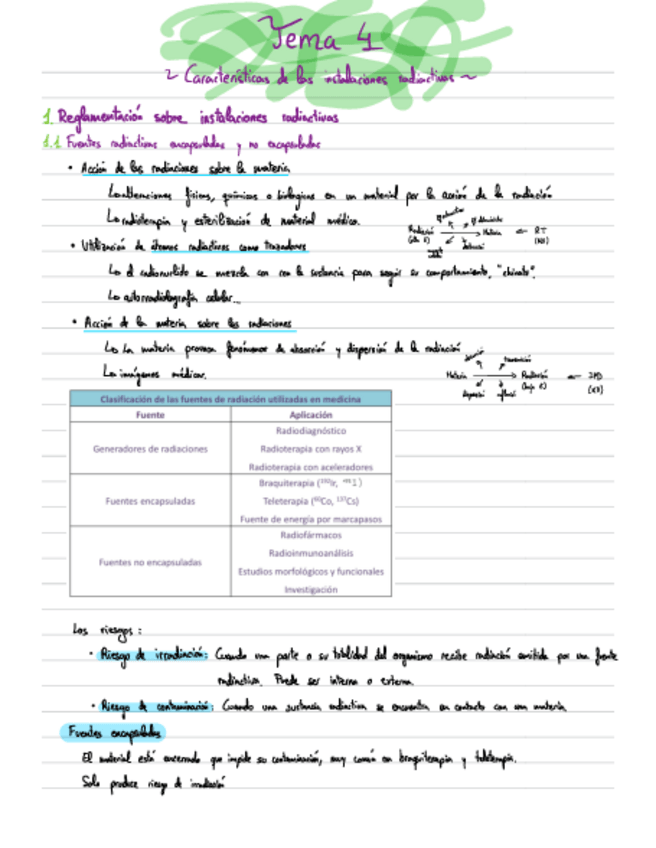 Tema 4
~ Características de las instalaciones radiactivas ~
1. Reglamentación sobre instalaciones radiactivas
1.1 Fuentes radiactivas encapsuladas y no encapsuladas
• Acción de las radiaciones sobre la materia
físicas, químicas o biológicas en un material por la acción de la radiación
La radioterapia y esterilización de material médico.
• Utilización de átomos radiactivos como trazadores
el radionúclido se mezcla con la sustancia para seguir su comportamiento, "chivato".
autorradiografía celular...
• Acción de la materia sobre las radiaciones
La materia provoca fenómenos de absorción y dispersión de la radiación
imágenes médicas.
Materia → Radiación
Clasificación de las fuentes de radiación utilizadas en medicina
Fuente Aplicación
Generadores de radiaciones
Radiodiagnóstico
Radioterapia con rayos X
Radioterapia con aceleradores
Fuentes encapsuladas
Braquiterapia (¹⁹²Ir,
Teleterapia (⁶⁰Co, ¹³⁷Cs)
Fuente de energía por marcapasos
Fuentes no encapsuladas
Radiofármacos
Radioinmunoanálisis
Estudios morfológicos y funcionales
Investigación
Los riesgos:
• Riesgo de irradiación: Cuando una parte o su totalidad del organismo recibe radiación emitida por una fuente
radiactiva. Puede ser interna o externa.
• Riesgo de contaminación: Cuando una sustancia radiactiva se encuentra en contacto con una materia.
Fuentes encapsuladas
El material está encerrado que impide su contaminación, muy común en braquiterapia y teleterapia.
Solo produce riesgo de irradiación